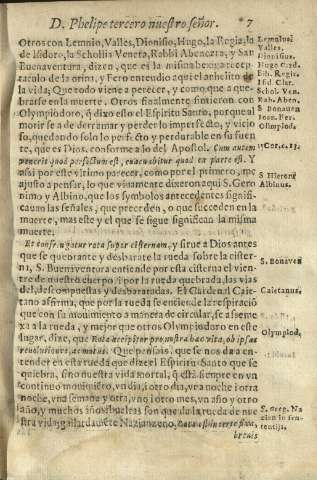 D. Phelipe tercero nuestro señor. 7
Otros con Lemnio, Valles, Dionisio, Hugo, la Regia, la
de Isidoro, la Schollis Veneta, Rabbi Abenezra, y San
Buenaventura, dizen, que es la misma
taculo de la orina, y Fero entendio aqui el anhelito de
la vida; Que todo viene a perecer, y como que a que-
brarse en la muerte. Otros finalmente sintieron con
Olympiodoro, q̃ dixo esto el Espiritu Santo, porque al
morir se a de derramar y perder lo imperfecto, y vicio
so, quedando solo lo perfecto y perdurable en su fuen
te, que es Dios. conforme a lo del Apostol. Cum autem
venerit quod perfectum est, euacuabitur quod ex parte est. Y
assi por este vltimo parecer, como por el primero, me
ajusto a pensar, lo que viuamente dixeron aqui S. Gero
nimo y Albino, que los symbolos antecedentes signifi-
cauan las señales, que preceden, o que suceden en la
muerte, mas este y el que se sigue significan la misma
muerte.
Et confringatur rota super cisternam, y sirue a Dios antes
que se quebrante y desbarate la rueda sobre la cister
na, S. Buenaventura entiende por esta cisterna el vien
tre de nuestro cuerpo, i por la rueda quebrada, las vias
del, descompuestas y desbaratadas. El Cardenal Caie-
tano afirma, que por la rueda se entiende la respiraciō
que con su mouimiento a manera de circular, se aseme
xa a la rueda, y mejor que otros Olympiodoro en este
lugar, dize, que Rota accipitur pro nostra hac vita, ob ipsas
reuolutiones, ac motus. Que pensais. que se nos da a en-
tender en esta rueda que dize el Espiritu Santo que se
quiebra, sino nuestra vida mortal, q̃ està siempre en vn
continuo mouimiēto, vn dia, i otro dia, vna noche i otra
noche, vna semana y otra, vn mes i otro, vn año y otro
año, y muchos años bueltas son que da la rueda de nue
stra vida; gallardamēte Nazianzeno.
breuis
Lemnius.
Valles,
Dionisius.
Hugo Card.
Bib. Regia.
Isid. Clar.
Schol. Ven.
Rab. Aben.
S Bonauen
Ioan. Fer.
Olimpiod.
1. Cor. c. 13.
S Hieroni
Albinus.
S. Bonauen
Caietanus.
Olympiod.
S. Greg. Na
cian in sen-
tentijs.